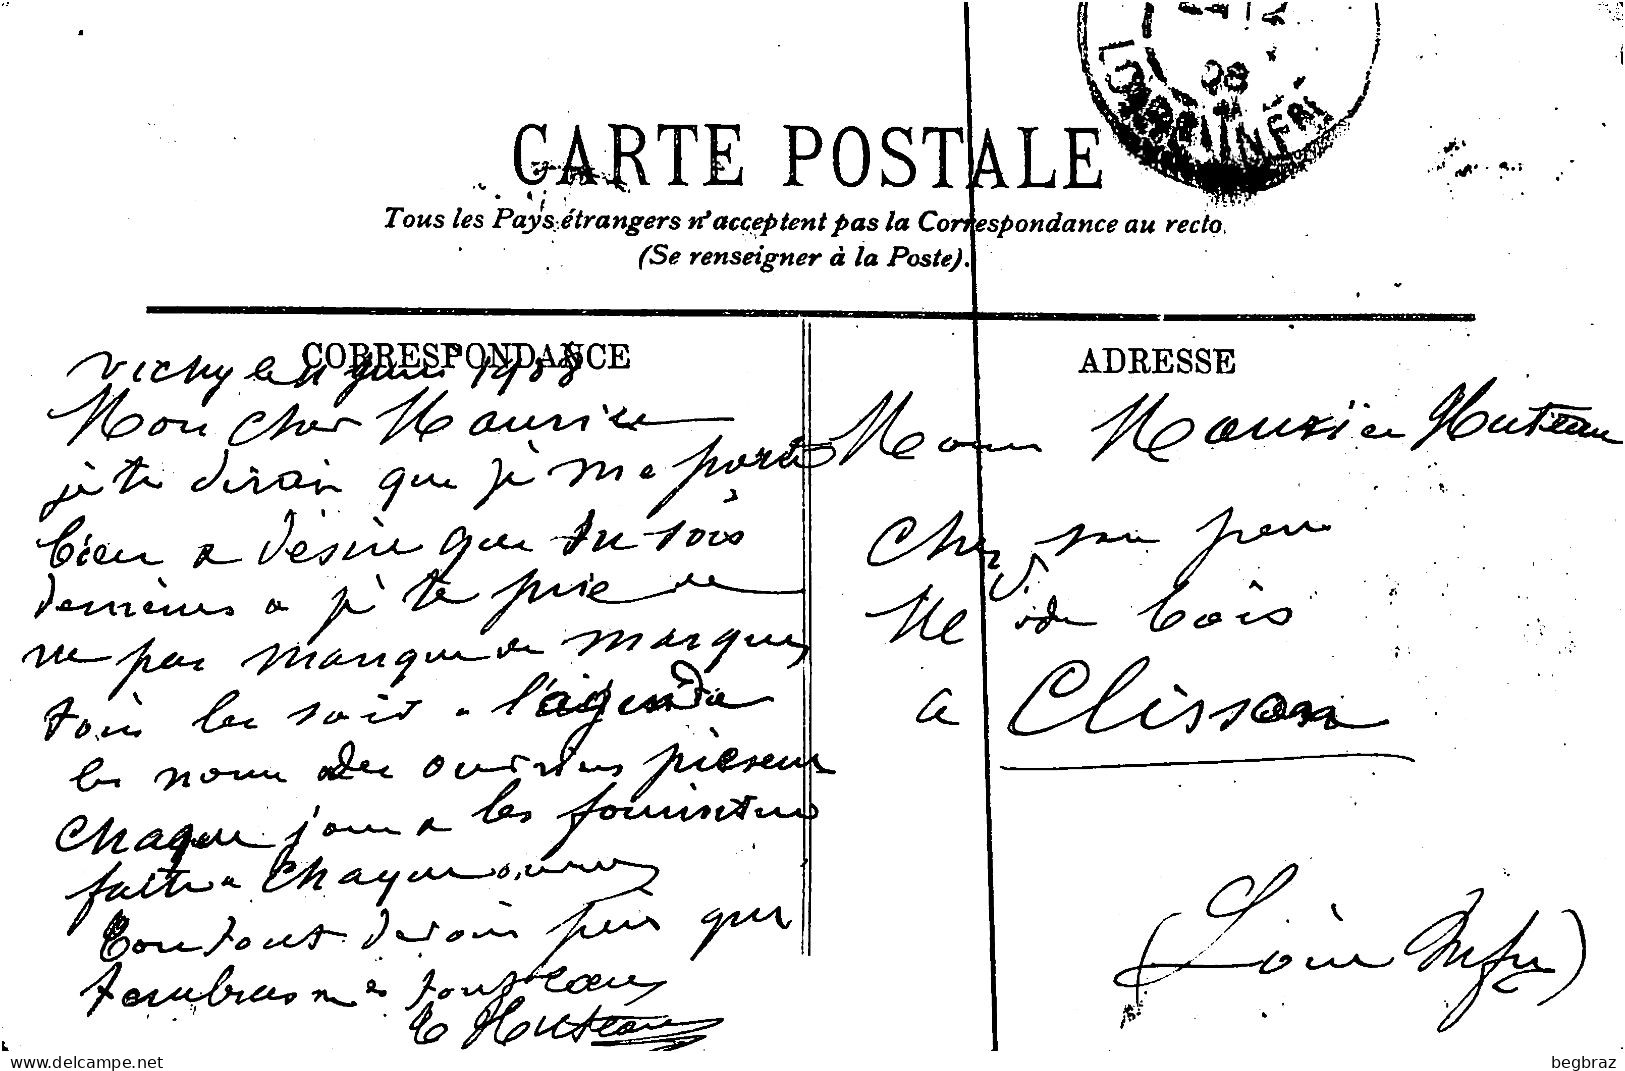 CARTE POSTALE
Tous les Pays étrangers n'acceptent pas la Correspondance au recto.
(Se renseigner à la Poste).
CORRESPONDANCE
Vichy le 11 juin 1908
Mon cher Maurice
je te dirai que je me porte
bien a désire que tu sois
de même a je te prie de
ne pas manque de marquer
tous les soir a l'agenda
les nom des ouvriers
chaque jour a les fourniture
faite a chaque
ton tout devoir
E Huteau
ADRESSE
Maurice Huteau
Chez son père
Me de bois
a Clisson
(Loire Infre)
LOIRE INFRE
08
www.delcampe.net
begbraz